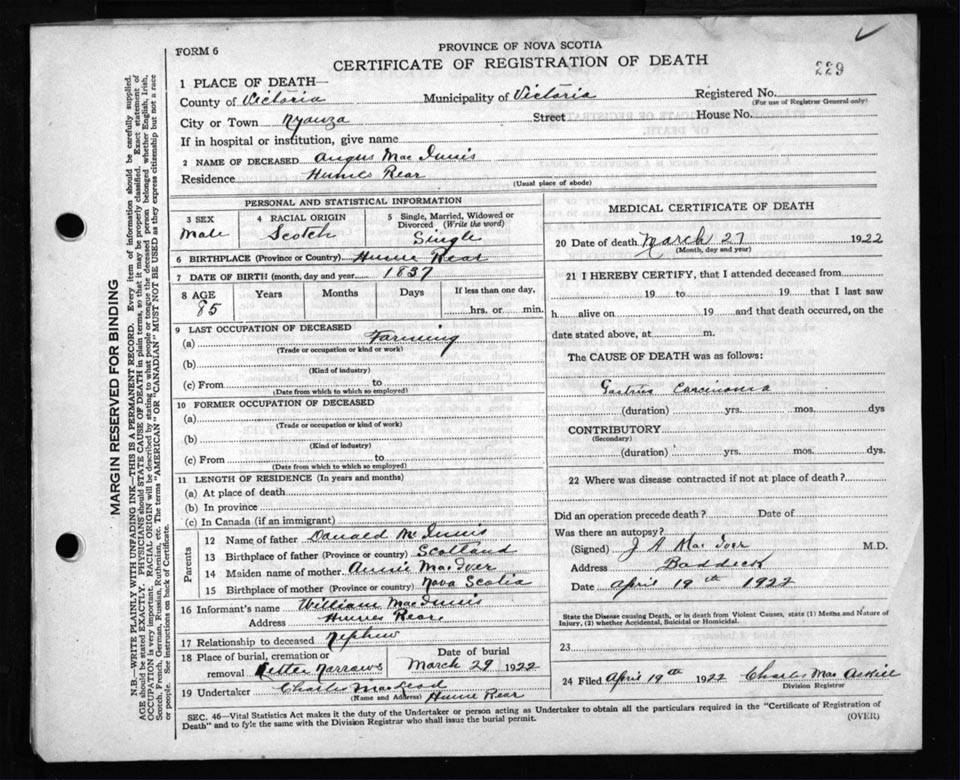 FORM 6
PROVINCE OF NOVA SCOTIA
CERTIFICATE OF REGISTRATION OF DEATH
229
1 PLACE OF DEATH—
County of Victoria Municipality of Victoria Registered No.
(For use of Registrar General only)
City or Town Nyanza Street House No.
If in hospital or institution, give name
2 NAME OF DECEASED Angus Mac Innis
Residence Humes Rear
(Usual place of abode)
PERSONAL AND STATISTICAL INFORMATION
3 SEX
Male
4 RACIAL ORIGIN
Scotch
5 Single, Married, Widowed or Divorced (Write the word)
Single
6 BIRTHPLACE (Province or Country) Hume Rear
7 DATE OF BIRTH (month, day and year) 1837
8 AGE Years Months Days If less than one day,
85 hrs. or min.
9 LAST OCCUPATION OF DECEASED
(a) Farming
(Trade or occupation or kind of work)
(b)
(Kind of industry)
(c) From to
(Date from which to which so employed)
10 FORMER OCCUPATION OF DECEASED
(a)
(Trade or occupation or kind of work)
(b)
(Kind of industry)
(c) From to
(Date from which to which so employed)
11 LENGTH OF RESIDENCE (In years and months)
(a) At place of death
(b) In province
(c) In Canada (if an immigrant)
Parents
12 Name of father Donald Mc Innis
13 Birthplace of father (Province or country) Scotland
14 Maiden name of mother Annie MacIver
15 Birthplace of mother (Province or country) Nova Scotia
16 Informant's name William MacInnis
Address Humes Rear
17 Relationship to deceased Nephew
18 Place of burial, cremation or removal Little Narrows
Date of burial
March 29 1922
19 Undertaker Charles MacLeod Hume Rear
(Name and Address)
MEDICAL CERTIFICATE OF DEATH
20 Date of death March 27 1922
(Month, day and year)
21 I HEREBY CERTIFY, that I attended deceased from
19 to 19 that I last saw
h alive on 19 and that death occurred, on
date stated above, at m.
The CAUSE OF DEATH was as follows:
Gastric Carcinoma
(duration) yrs. mos. dys
CONTRIBUTORY
(Secondary)
(duration) yrs. mos. dys.
22 Where was disease contracted if not at place of death?
Did an operation precede death? Date of
Was there an autopsy?
(Signed) Mac Iver M.D.
Address Baddeck
Date April 19th 1922
State the Disease causing Death, or in death from Violent Causes, state (1) Means and Nature of Injury, (2) whether Accidental, Suicidal or Homicidal.
23
24 Filed April 19th 1922 Charles Mac Askill
Division Registrar
SEC. 46—Vital Statistics Act makes it the duty of the Undertaker or person acting as Undertaker to obtain all the particulars required in the "Certificate of Registration of
Death" and to fyle the same with the Division Registrar who shall issue the burial permit. (OVER)
MARGIN RESERVED FOR BINDING
N.B.—WRITE PLAINLY WITH UNFADING INK—THIS IS A PERMANENT RECORD. Every item of information should be carefully supplied.
AGE should be stated EXACTLY. PHYSICIANS should STATE CAUSE OF DEATH in plain terms, so that it may be properly classified. Exact statement of
OCCUPATION is very important. RACIAL ORIGIN will be described by stating to what people or tongue the deceased person belonged whether English, Irish,
Scotch, French, German, Russian, Ruthenian, etc. The terms "AMERICAN" OR "CANADIAN" MUST NOT BE USED as they express citizenship but not a race
or people. See instructions on back of Certificate.